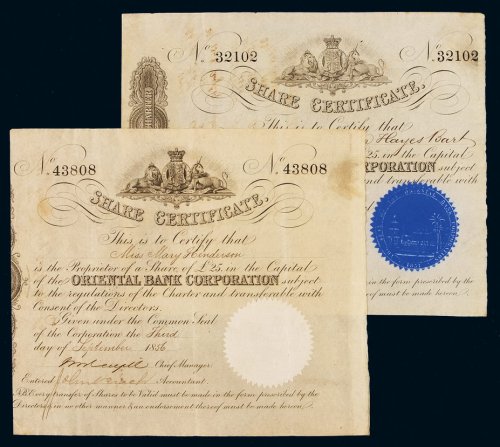 No. 32102
32102
SHARE CERTIFICATE,
This is to Certify that
Hayes Bart
£25. in the Capital
PORATION subject
and transferable with
in the form prescribed by the
of must be made hereon.
No. 43808
43808
SHARE CERTIFICATE,
This is to Certify that
Miss Mary Henderson
is the Proprietor of a Share of £25. in the Capital
of the ORIENTAL BANK CORPORATION subject
to the regulations of the Charter and transferable with
Consent of the Directors.
Given under the Common Seal
of the Corporation the Third
day of September 1856
Chief Manager.
Entered Accountant.
NB. Every transfer of Shares to be Valid must be made in the form prescribed by the
Directors in no other manner & an endorsement thereof must be made hereon.